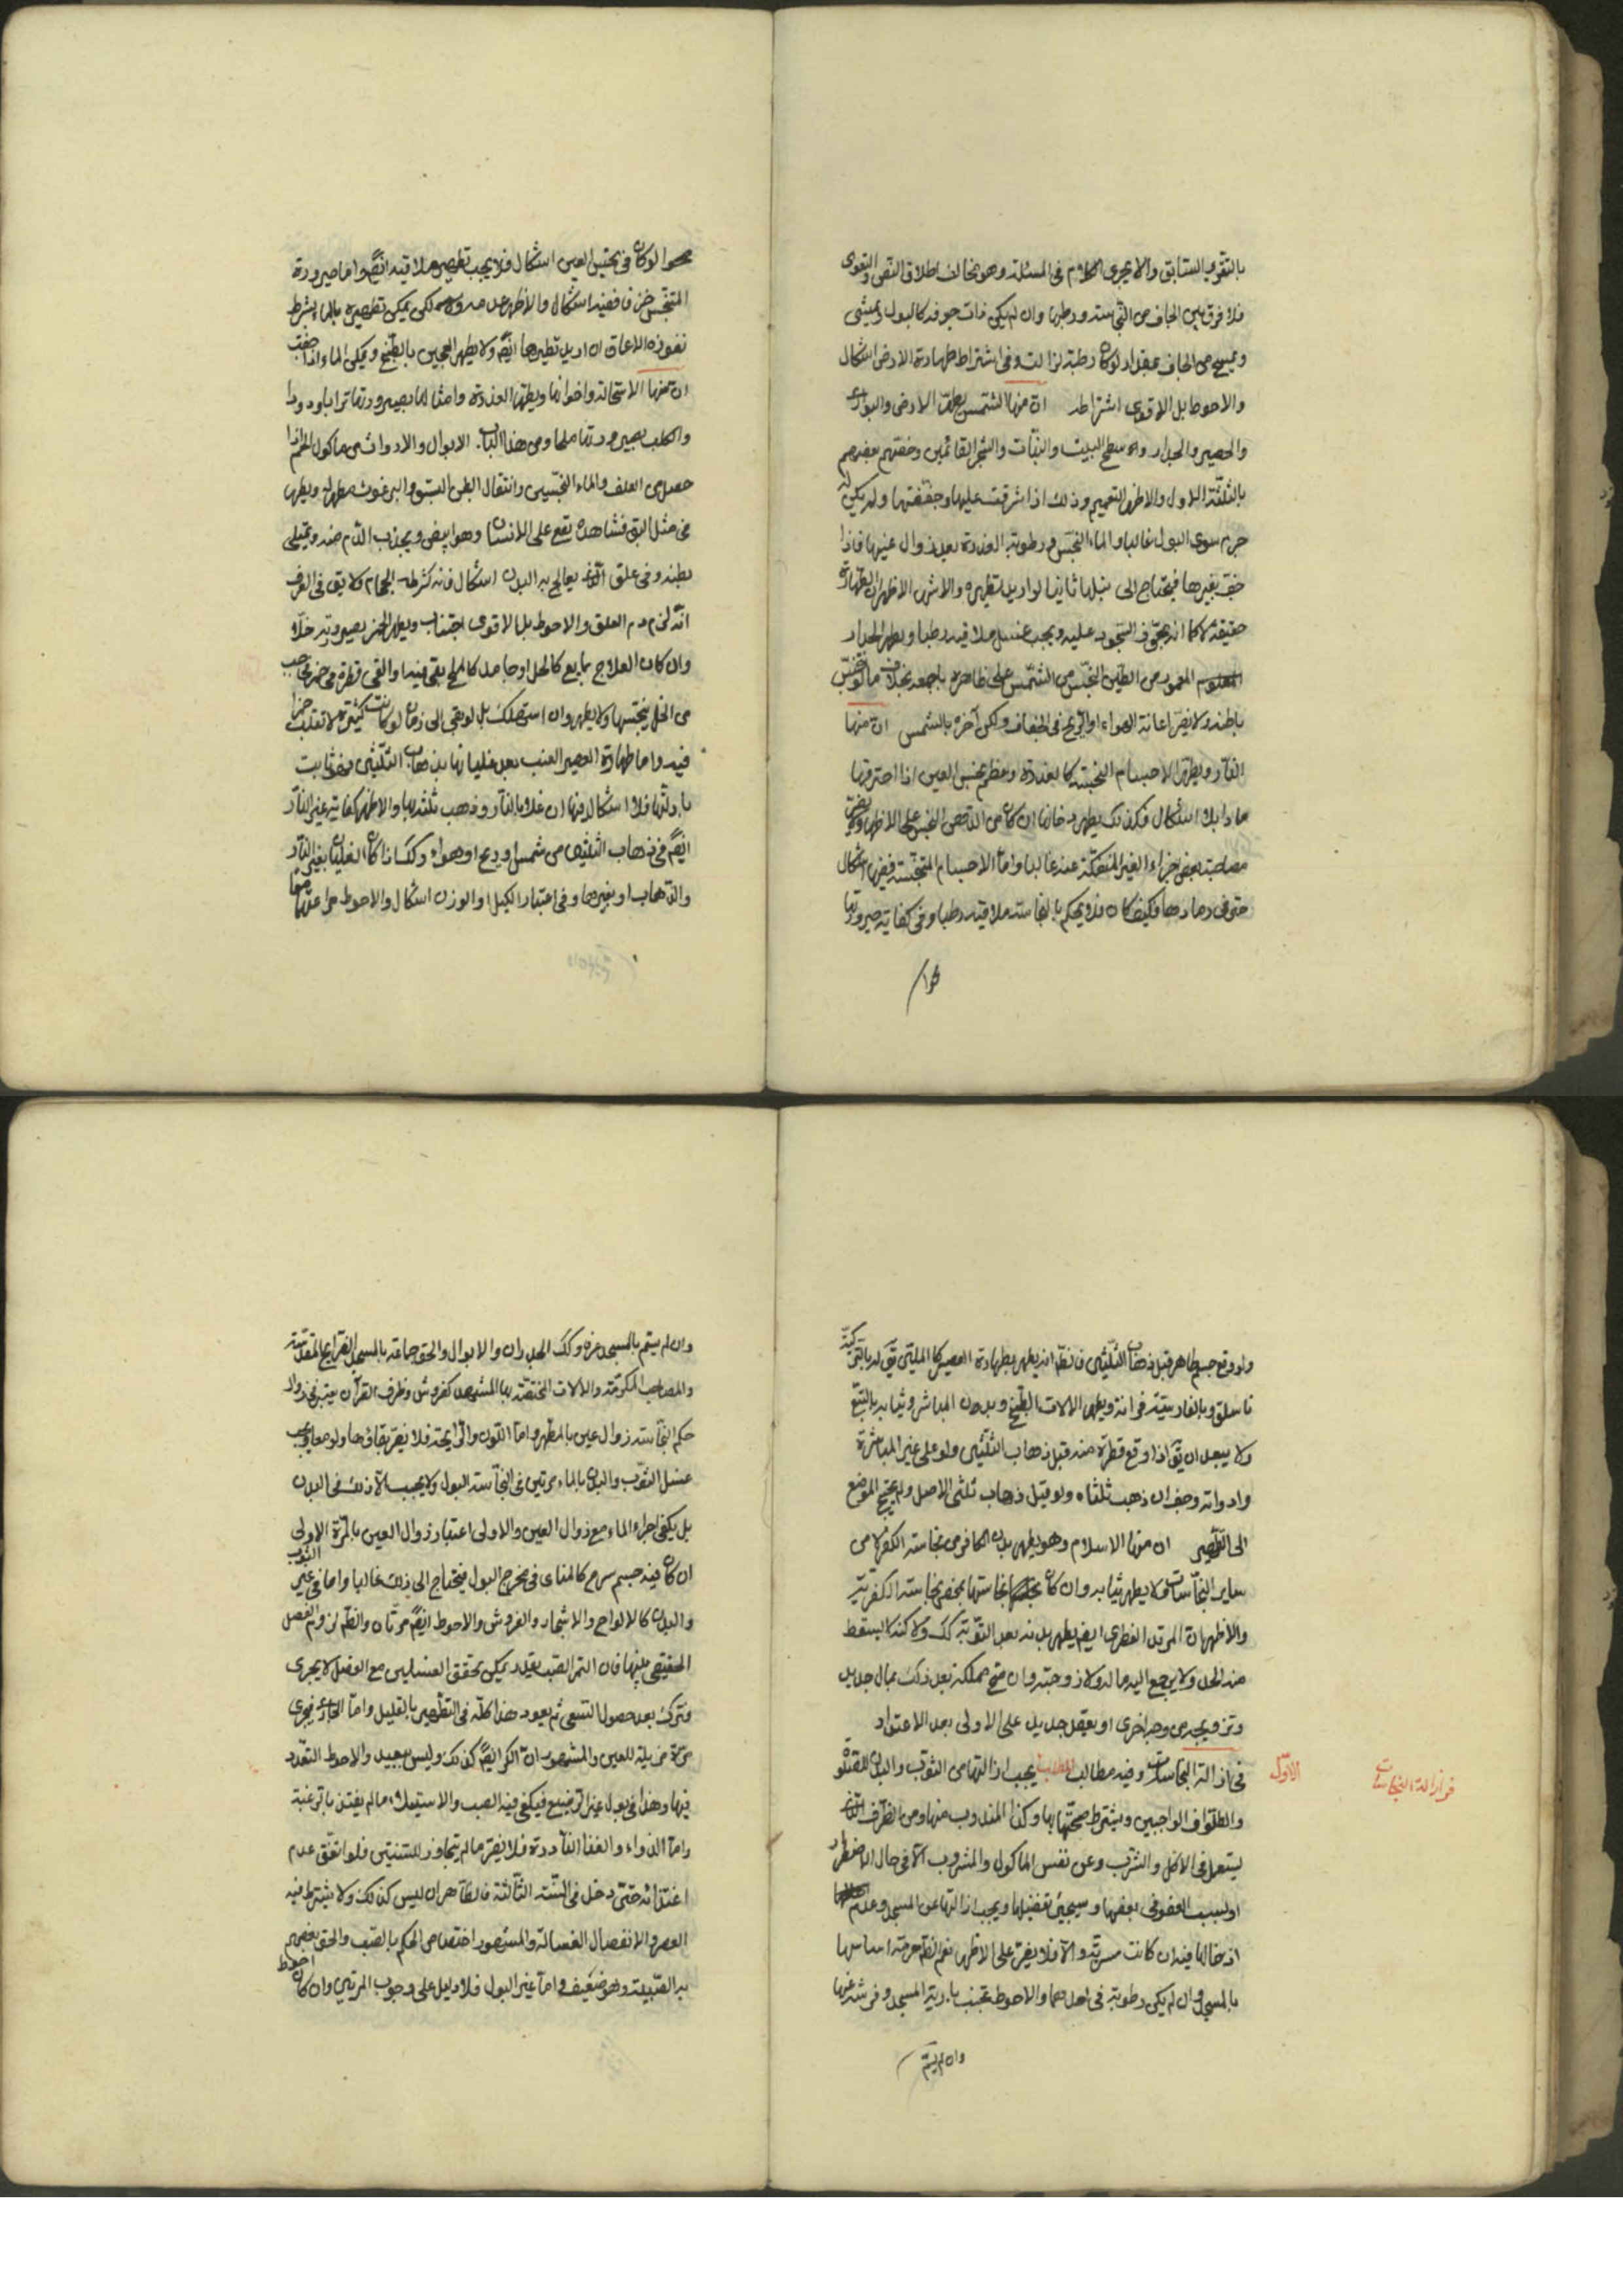 بالتقريب السابق والا يجرى الكلام فى المسئلة وهو مخالف اطلاق النص والفتوى
فلا فرق بين الجاف من النجاسة ورطبها وان لم يكن ذات جرم كالبول ويمشى
ويمسح من الجاف بمقدار لو كان رطبة لزالت وفى اشتراط طهارة الارض اشكال
والاحوط بل الاقوى اشتراطه ان منها الشمس يطهر الارض والبوارى
والحصير والجدار وسطح البيت والنبات والشجر القائمين وخصّهم بعضهم
بالثلثة الاول والاظهر التعميم وذلك اذا اشرقت عليها وجففتها ولم يكن له
جرم سوى البول غالبا والماء النجس ورطوبة العذرة بعد زوال عينها فاذا
جف بغيرها فيحتاج الى بلها ثانيا لو اريد تطهيره والاشهر الاظهر ان الطهارة
حقيقة لا كما انه يجوز السجود عليه ويجب غسل ملاقيه رطبا ويطهر الجدار
المعمور من الطين النجس من الشمس على ظاهره باجمعه بخلاف ما لو نجس
باطنه ولا يضر اعانة الهواء او الريح فى الجفاف ولكن آخره بالشمس ان منها
النار ويطهر الاجسام النجسة كالعذرة وعظم نجس العين اذا احترقها
رمادا بلا اشكال وكذلك يطهر دخانها ان كان من الدهن النجس على الاظهر ولا يضر
مصاحبة بعض اجزاء الغير المنفكة عنه غالبا واما الاجسام المتنجسة ففيها اشكال
حتى فى رمادها وكيف كان فلا يحكم بالنجاسة ملاقيه رطبا وفى كفاية صيرورتها
فحوا لو كان فى نجس العين اشكال فلا يجب تطهير ملاقيه ايضا واما صيرورة
المتنجس خزفا ففيه اشكال والاظهر عدمه ولكن يمكن تطهيره بالماء بشرط
نفوذه الاعماق ان اريد تطهيرها ايضا ولا يطهر العجين بالطبخ ويمكن الماء اذا جفت
ان منها الاستحالة واخواتها ويطهر العذرة وامثالها بصيرورتها ترابا ودودا
والكلب بصيرورتها ملحا ومن هذا الباب الابوال والارواث من ماكول اللحم اذا
حصل من العلف والماء النجسين وانتقال البطن البق والبرغوث مطهرا ويطهر
فى مثل البق فشاهده يقع على الانسان وهو ابيض ويجذب الدم منه ويمتلى
بطنه وفى علق الذى يعالج به البدن اشكال فانه كشرطه الحجام ولا يق فى العرف
انه لزم دم العلق والاحوط بل الاقوى اجتنابه ويطهر الخمر بصيرورته خلا
وان كان العلاج بمايع كالخل او جامد كالملح بقى فيه او القى قطرة من خمر فى حب
من الخل ينجسها ولا يطهر وان استهلك بل لو بقى الى زمان لو كانت كثيرة لا تقلب خمرا
فيه واما طهارة العصير العنب بعد غليانها بذهاب الثلثين فهو ثابت
بادلتها فلا اشكال فيها ان غلا بالنار وذهب ثلثه بها والاظهر كفاية غير النار
ايضا فى ذهاب الثلثين من شمس او ريح او هواء وكك اذا كان الغليان بغير النار
والذهاب او بغيرها وفى اعتبار الكيل او الوزن اشكال والاحوط مراعاتهما معا
ولو وقع جسم طاهر قبل ذهاب الثلثين فانظر انه يطهر بطهارة العصير كالملتين
ولا يبعد ان يق اذا وقع قطرة منه قبل ذهاب الثلثين ولو على غير المباشرة
وادواته وجف ان ذهب ثلثاه ولو قبل ذهاب ثلثى الاصل ولم يحتج الموضع
الى التطهير ان منها الاسلام وهو يطهر بدن الكافر من نجاسة الكفر لا من
ساير النجاسات فلا يطهر ثيابه وان كان نجاستها بمحض نجاسة الكفرية
والاظهر ان المرتد الفطرى ايضا يطهر بدنه بعد التوبة كك ولكنه لا يسقط
عنه الحد ولا يرجع اليه ماله ولا زوجته وان صح تملكه بعد ذلك بمال جديد
وتزويجه من وجه اخرى او بعقد جديد على الاولى بعد الاعتداد
فى ازالة النجاسات
الاول
فى ازالة النجاسات وفيه مطالب المطلب يجب ازالتها من الثوب والبدن للصلوة
والطواف الواجبين ويشترط صحتها بها وكذا المندوب منها ومن الظرف الذى
يستعمل فى الاكل والشرب وعن نفس الماكول والمشروب الا فى حال الاضطرار
او لسبب العفو فى بعضها وسيجئ تفصيلها ويجب ازالتها عن المسجد وعدم
ادخالها فيه ان كانت مسرية والا فلا يضر على الاظهر نعم الظ حرمة اساسها
بالمسجد وان لم يكن رطوبة فى احدهما والاحوط تجنب باريته المسجد وفرشه عنها
وان لم يتم
وان لم يتم بالمسجد عرفا وكك الجدران والابواب والحق جماعة بالمسجد الضرايح المقدسة
والمصاحف المكرمة والالات المختصة بها المشهد كفروش وظرف القرآن يعتبر فى زوال
حكم النجاسة زوال عين بالمطهر واما اللون والرايحة فلا يضر بقاؤها ولو معا ويجب
غسل الثوب والبدن بالماء مرتين فى النجاسة البول ولا يجب الا ذلك فى البدن
بل يكفى اجراء الماء مع زوال العين والاولى اعتبار زوال العين بالمرة الاولى
ان كان فيه جسم سرم كالمنى فى مخرج البول فيحتاج الى ذلك غالبا واما فى غير الثوب
والبدن كالالواح والاشجار والفروش والاحوط ايضا مرتان والظ لزوم الفصل
الحقيقى بينها فان التمر الصب بقليد يمكن تحقق الغسلين مع الفصل لا يجرى
وترك بعد حصول التسعى ثم يعود هذا كله فى التطهير بالقليل واما الجارى فيجرى
مرة مزيلة للعين والمشهور ان الكر ايضا كذلك وليس ببعيد والاحوط التعدد
فيها وهذا فى بول غير الرضيع فيكفى فيه الصب والاستيعاب ما لم يغتذ بالرغبة
واما الدواء والغذا النادرة فلا يضر ما لم يتجاوز للسنتين فلو اتفق عدم
اغتذائه حتى دخل فى السنة الثالثة فالظاهر ان ليس كذلك ولا يشترط فيه
العصر والانفصال الغسالة والمشهور اختصاص الحكم بالصبى والحق بعضهم
به الصبية وهو ضعيف واما غير البول فلا دليل على وجوب المرتين وان كان احوط